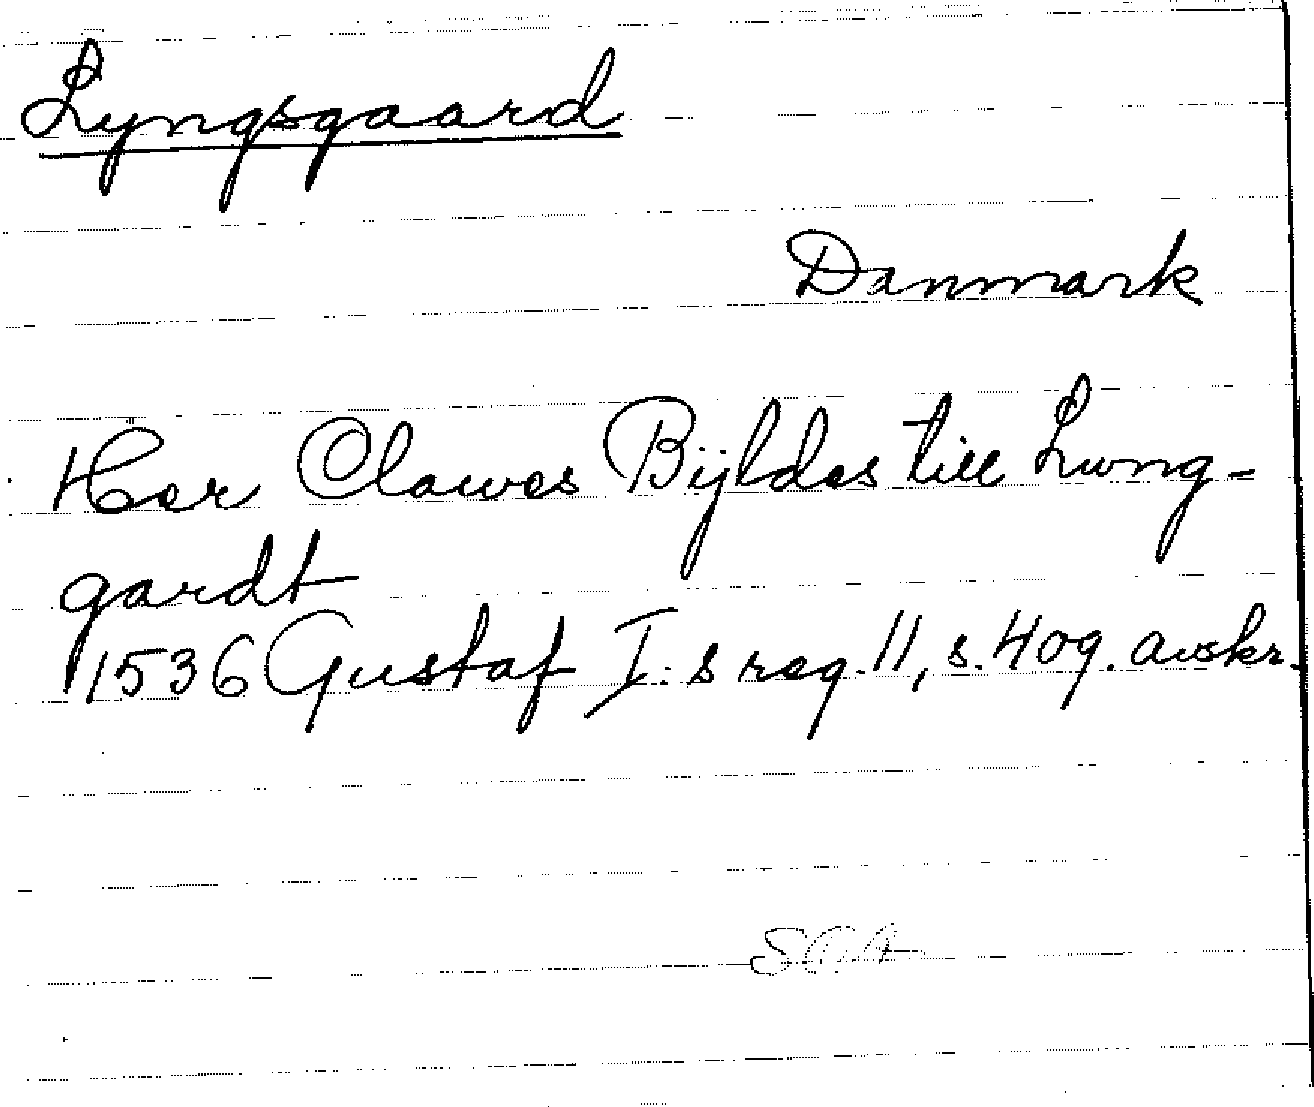 Lyngsgaard
Danmark
Her Clawes Bijldes till Lwng-
gardt
1536 Gustaf I:s reg. 11, s. 409. avskr.